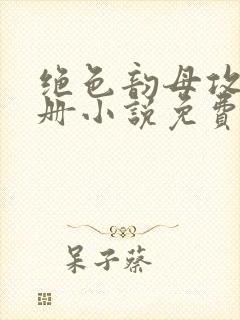 绝色韵母攻
册小说免费
呆子蔡